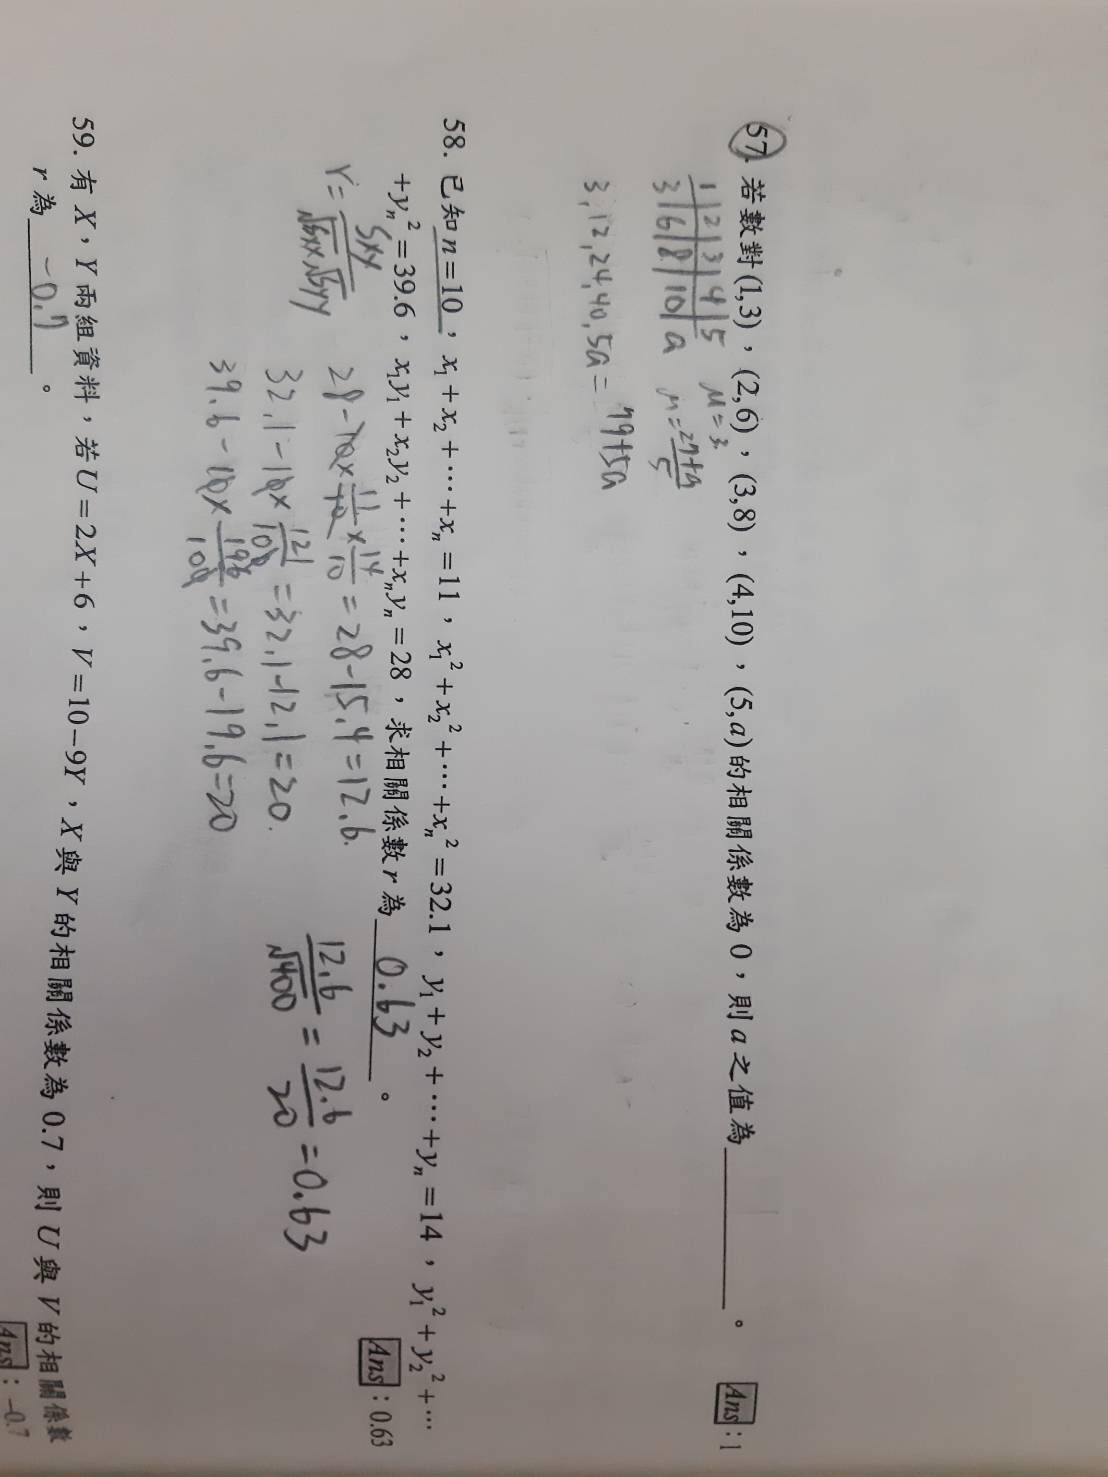 57. 若數對(1,3),(2,6),(3,8),(4,10),(5,a)的相關係數為 0,則 a 之值為________。 Ans:1
1 | 2 | 3 | 4 | 5 M=3.
3 | 6 | 8 | 10 | a M=27+a/5
3,12,24,40,5a= 79+5a
58. 已知n=10,x₁+x₂+⋯+xₙ=11,x₁²+x₂²+⋯+xₙ²=32.1,y₁+y₂+⋯+yₙ=14,y₁²+y₂²+⋯
+yₙ²=39.6,x₁y₁+x₂y₂+⋯+xₙyₙ=28,求相關係數 r 為 0.63 。 Ans:0.63
r=Sxy/√Sxx√Syy 28-10×11/10×14/10=28-15.4=12.6.
32.1-10×121/100=32.1-12.1=20.
12.6/√400=12.6/20=0.63
39.6-10×196/100=39.6-19.6=20
59. 有 X,Y 兩組資料,若U=2X+6,V=10-9Y,X 與 Y 的相關係數為 0.7,則 U 與 V 的相關係數
r 為 -0.7 。 Ans:-0.7